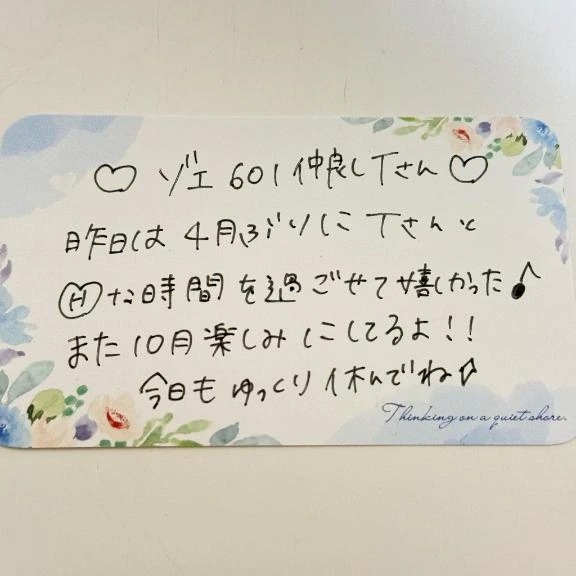 ♡ ゾエ 601 仲良し Tさん ♡
昨日は 4月ぶりに Tさんと
Ⓗな時間を過ごせて嬉しかった♪
また10月楽しみにしてるよ!!
今日もゆっくり休んでね♪
Thinking on a quiet shore.